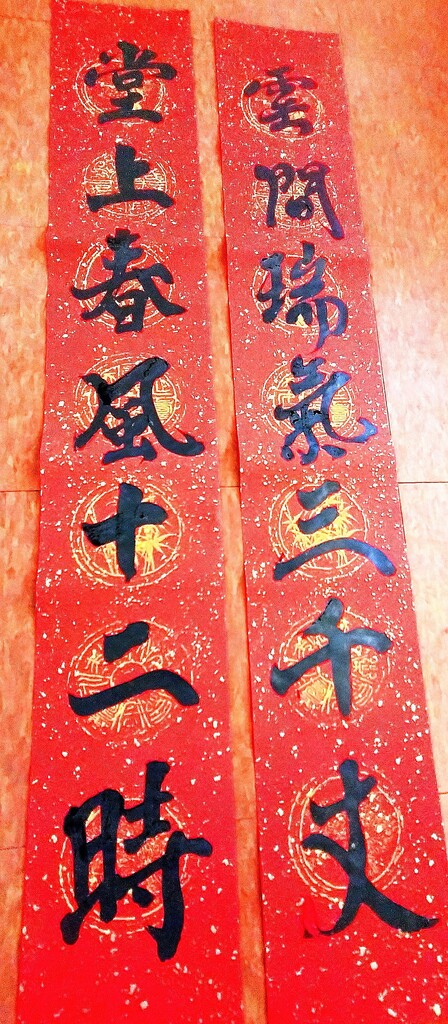 雲間瑞氣三千丈
堂上春風十二時